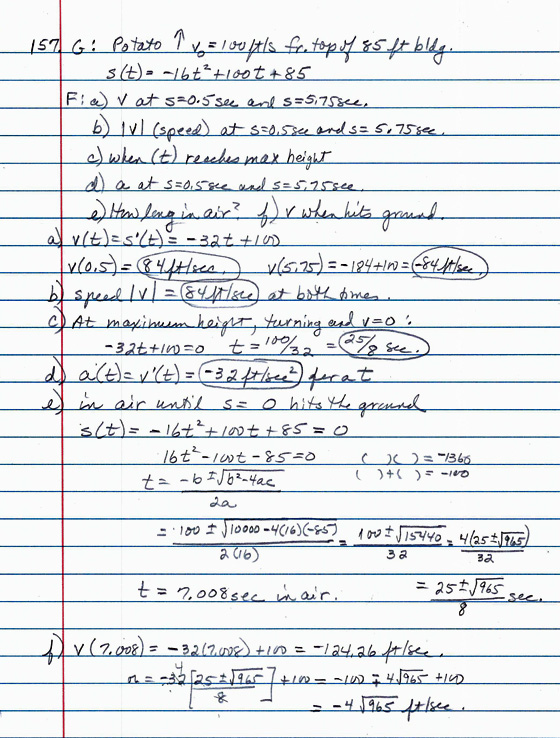 157. G: Potato ↑ v₀ = 100 ft/s fr. top of 85 ft bldg.
s(t) = -16t² + 100t + 85
F: a) v at s=0.5sec and s=5.75sec.
b) |v| (speed) at s=0.5sec and s=5.75sec.
c) when (t) reaches max height
d) a at s=0.5sec and s=5.75sec.
e) How long in air? f) v when hits ground.
a) v(t) = s'(t) = -32t + 100
v(0.5) = 84 ft/sec. v(5.75) = -184+100 = -84 ft/sec.
b) speed |v| = 84 ft/sec at both times.
c) At maximum height, turning and v=0 :
-32t+100=0 t = 100/32 = 25/8 sec.
d) a(t) = v'(t) = -32 ft/sec² for a t
e) in air until s = 0 hits the ground
s(t) = -16t² + 100t + 85 = 0
16t² - 100t - 85 = 0 ( )( ) = -1360
t = (-b ± √(b²-4ac))/2a ( )+( ) = -100
= (100 ± √(10000-4(16)(-85)))/2(16) = (100 ± √15440)/32 = 4(25±√965)/32
t = 7.008 sec in air. = (25±√965)/8 sec.
f) v(7.008) = -32(7.008) + 100 = -124.26 ft/sec.
or = -32 4 [(25±√965)/8] + 100 = -100 ∓ 4√965 + 100
= -4√965 ft/sec.